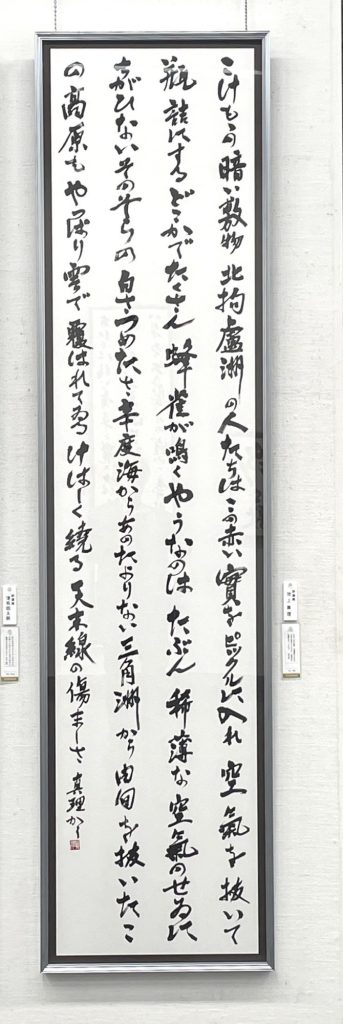 こけももの暗い敷物 北拘盧洲の人たちは この赤い實をピックルに入れ 空氣を抜いて
瓶詰にする どこかでたくさん 蜂雀が鳴くやうなのは たぶん 稀薄な空氣のせゐに
ちがひない そのそらの 白さつめたさ 辛度海から あのたよりない三角洲から 由旬を抜いたこ
の高原も やはり雲で覆はれてゐる けはしく繞る 天末線の傷ましさ 真理かく